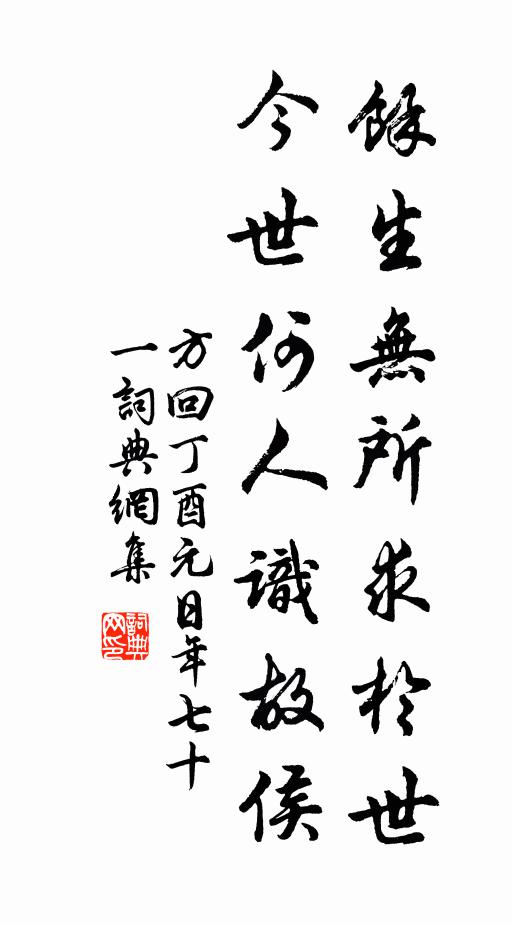 餘生無所求於世
今世何人識故侯
方回丁酉元日年七十
一詞典網集
詞典
网印